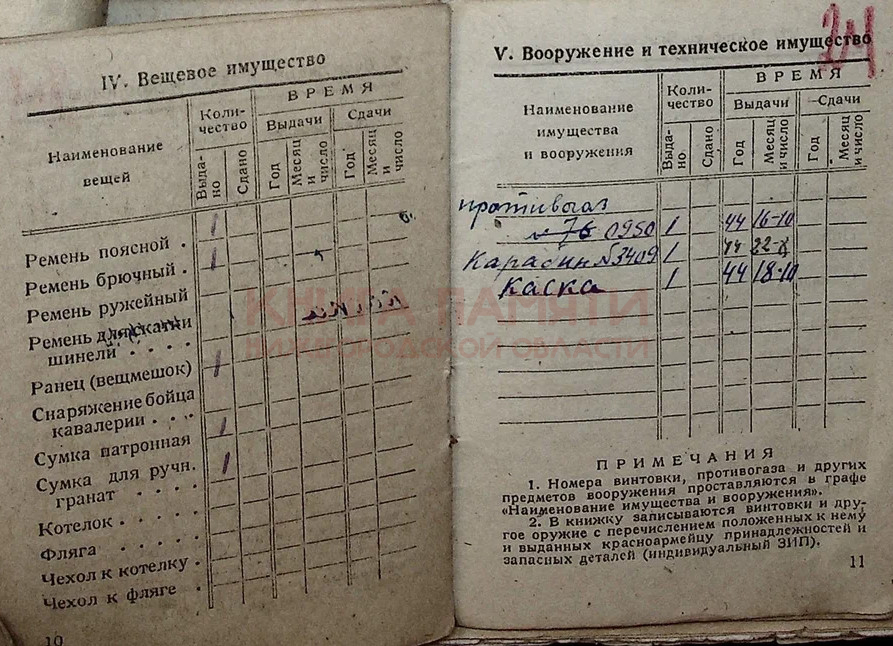 IV. Вещевое имущество
Наименование вещей
Количество
ВРЕМЯ
Выдачи
Сдачи
Выдано
Сдано
Год
Месяц и число
Год
Месяц и число
Ремень поясной . 1
Ремень брючный . 1
Ремень ружейный
Ремень для скатки
шинели . . . .
Ранец (вещмешок) 1
Снаряжение бойца
кавалерии . . .
Сумка патронная 1
Сумка для ручн. 1
гранат . . . .
Котелок . . . .
Фляга . . . . .
Чехол к котелку .
Чехол к фляге .
10
24
V. Вооружение и техническое имущество
Наименование
имущества
и вооружения
Количество
ВРЕМЯ
Выдачи
Сдачи
Выдано
Сдано
Год
Месяц и число
Год
Месяц и число
противогаз
0950 1 44 16-10
Карабин №3409 1 44
Каска 1 44 18-10
КНИГА ПАМЯТИ
НИЖЕГОРОДСКОЙ ОБЛАСТИ
ПРИМЕЧАНИЯ
1. Номера винтовки, противогаза и других
предметов вооружения проставляются в графе
«Наименование имущества и вооружения».
2. В книжку записываются винтовки и дру-
гое оружие с перечислением положенных к нему
и выданных красноармейцу принадлежностей и
запасных деталей (индивидуальный ЗИП).
11